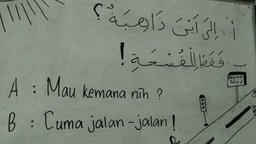 أ : إِلَى أَيْنَ ذَاهِبَةٌ ؟
ب : فَقَطْ لِلْفُسْحَةِ !
A : Mau kemana nih ?
B : Cuma jalan-jalan !